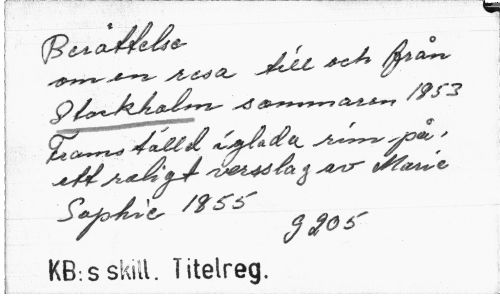 Berättelse
om en resa till och från
Stockholm sommaren 1853
Framställd i glada rim på,
ett roligt versslag av Marie
Sophie 1855
g 205
KB:s skill. Titelreg.